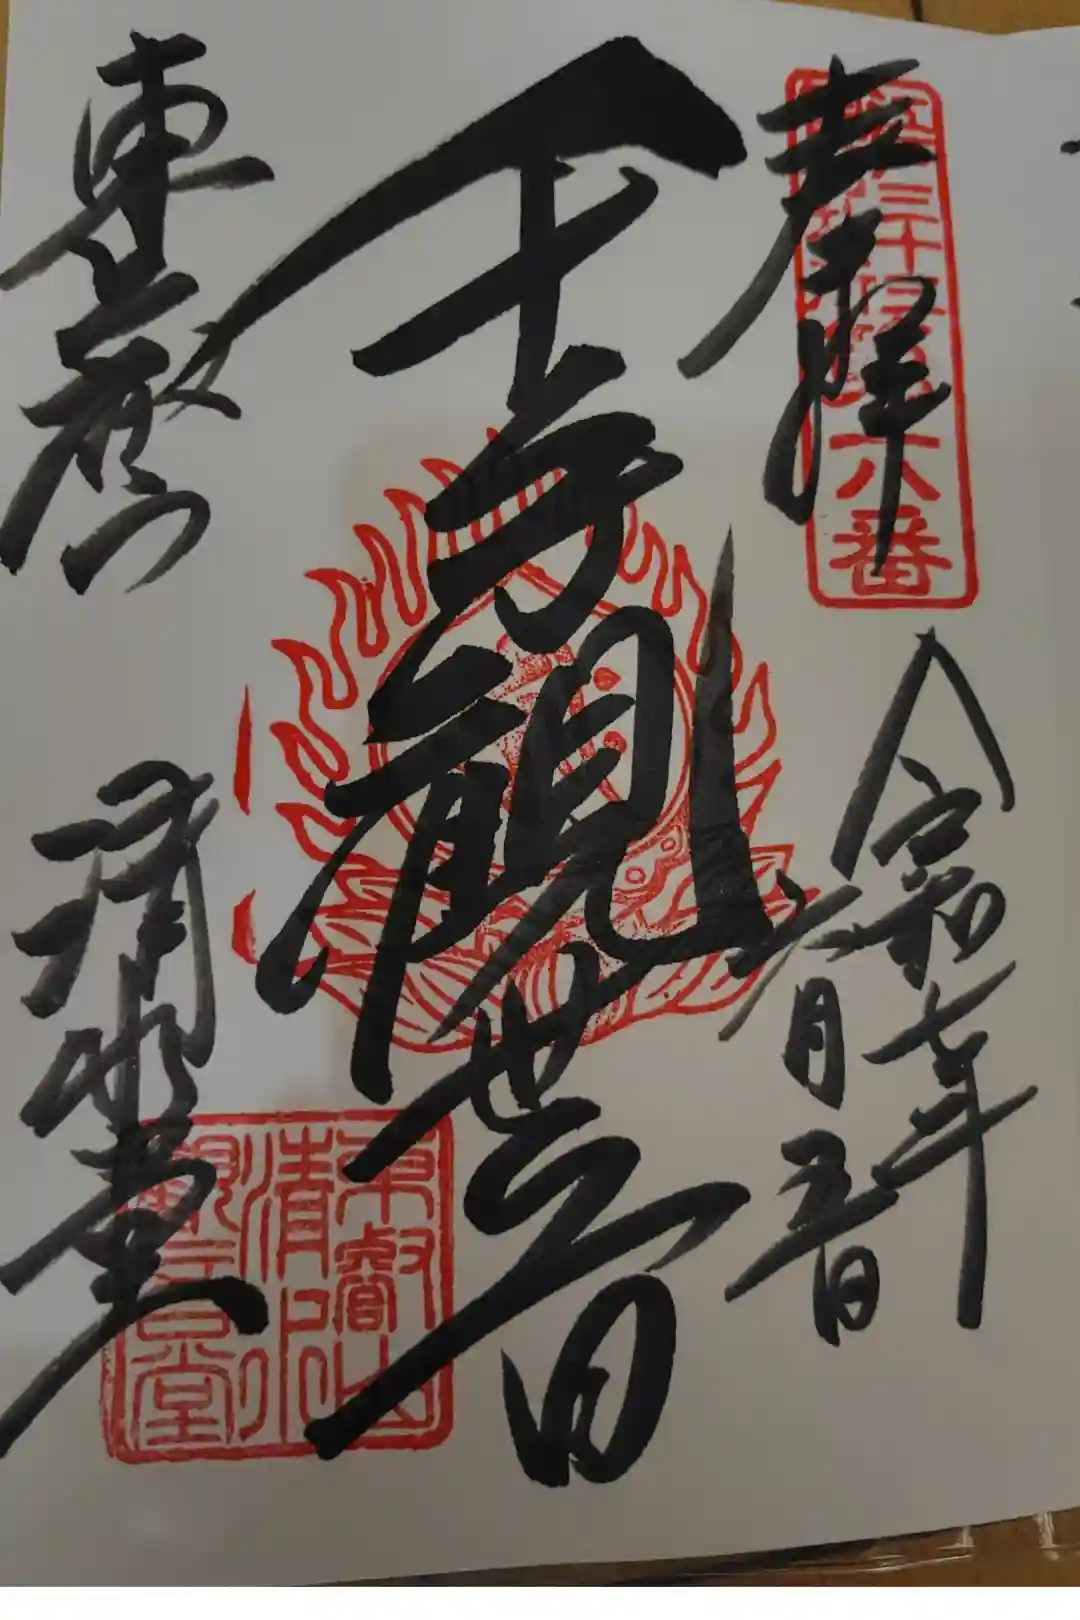 奉拝
三十三
六番
令和七年
六月五日
千手観世音
東叡山
清水堂
東叡山
清水
観音堂